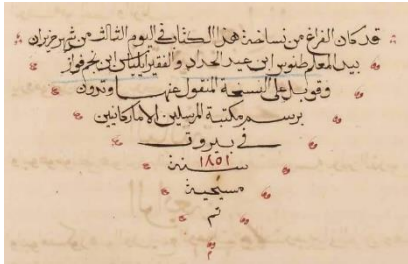 قد كان الفراغ من نساخة هذا الكتاب في اليوم الثالث من شهر حزيران
بيد المعلم طنوس ابن عيد الحداد والفقير الياس ابن نجم فواز
وقوبل على النسخة المنقول عنها
برسم مكتبة المرسلين الاماركانيين
في بيروت
سنة
١٨٥١
مسيحية
تم
م